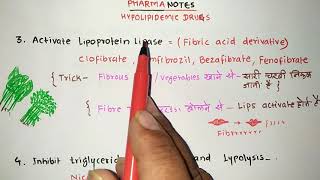 PHARMA NOTES
HYPOLIPIDEMIC DRUGS
3. Activate Lipoprotein Lipase = (Fibric acid derivative)
Clofibrate, mfibrozil, Bezafibrate, Fenofibr
{Trick- Fibrous / vegetables खाने से - सारी चरबी निकल
जाती है }
{ Fibre खोलने से - Lips activate होते हैं
Fibrrrrrr
4. Inhibit triglyceri and Lypolysis_
Nic